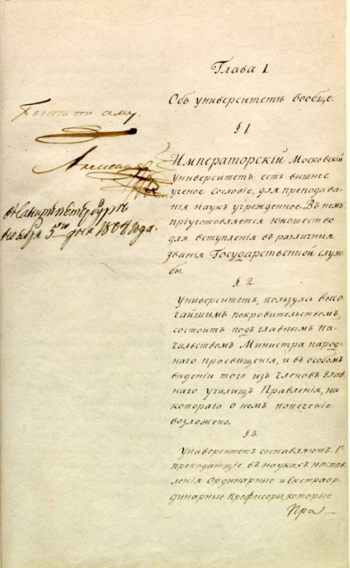 Глава I.
Объ университетѣ вообще.
§ 1.
Быть по сему.
Александръ
въ Санктпетербургѣ
ноября 5го дня 1804 года.
Императорскій Московскій
Университетъ есть вышнее
ученое сословіе, для преподава-
нія наукъ учрежденное. Въ немъ
пріуготовляется юношество
для вступленія въ различныя
званія Государственной служ-
бы.
§ 2.
Университетъ, пользуясь высо-
чайшимъ покровительствомъ,
состоитъ подъ главнымъ на-
чальствомъ Министра народ-
наго просвѣщенія, и въ особомъ
вѣденіи того изъ членовъ глав-
наго училищъ Правленія, на
котораго о немъ попеченіе
возложено.
§ 3.
Университетъ составляютъ: 1е
преподающіе въ наукахъ настав-
ленія Ординарные и Екстраор-
динарные Профессоры, которые
Пра